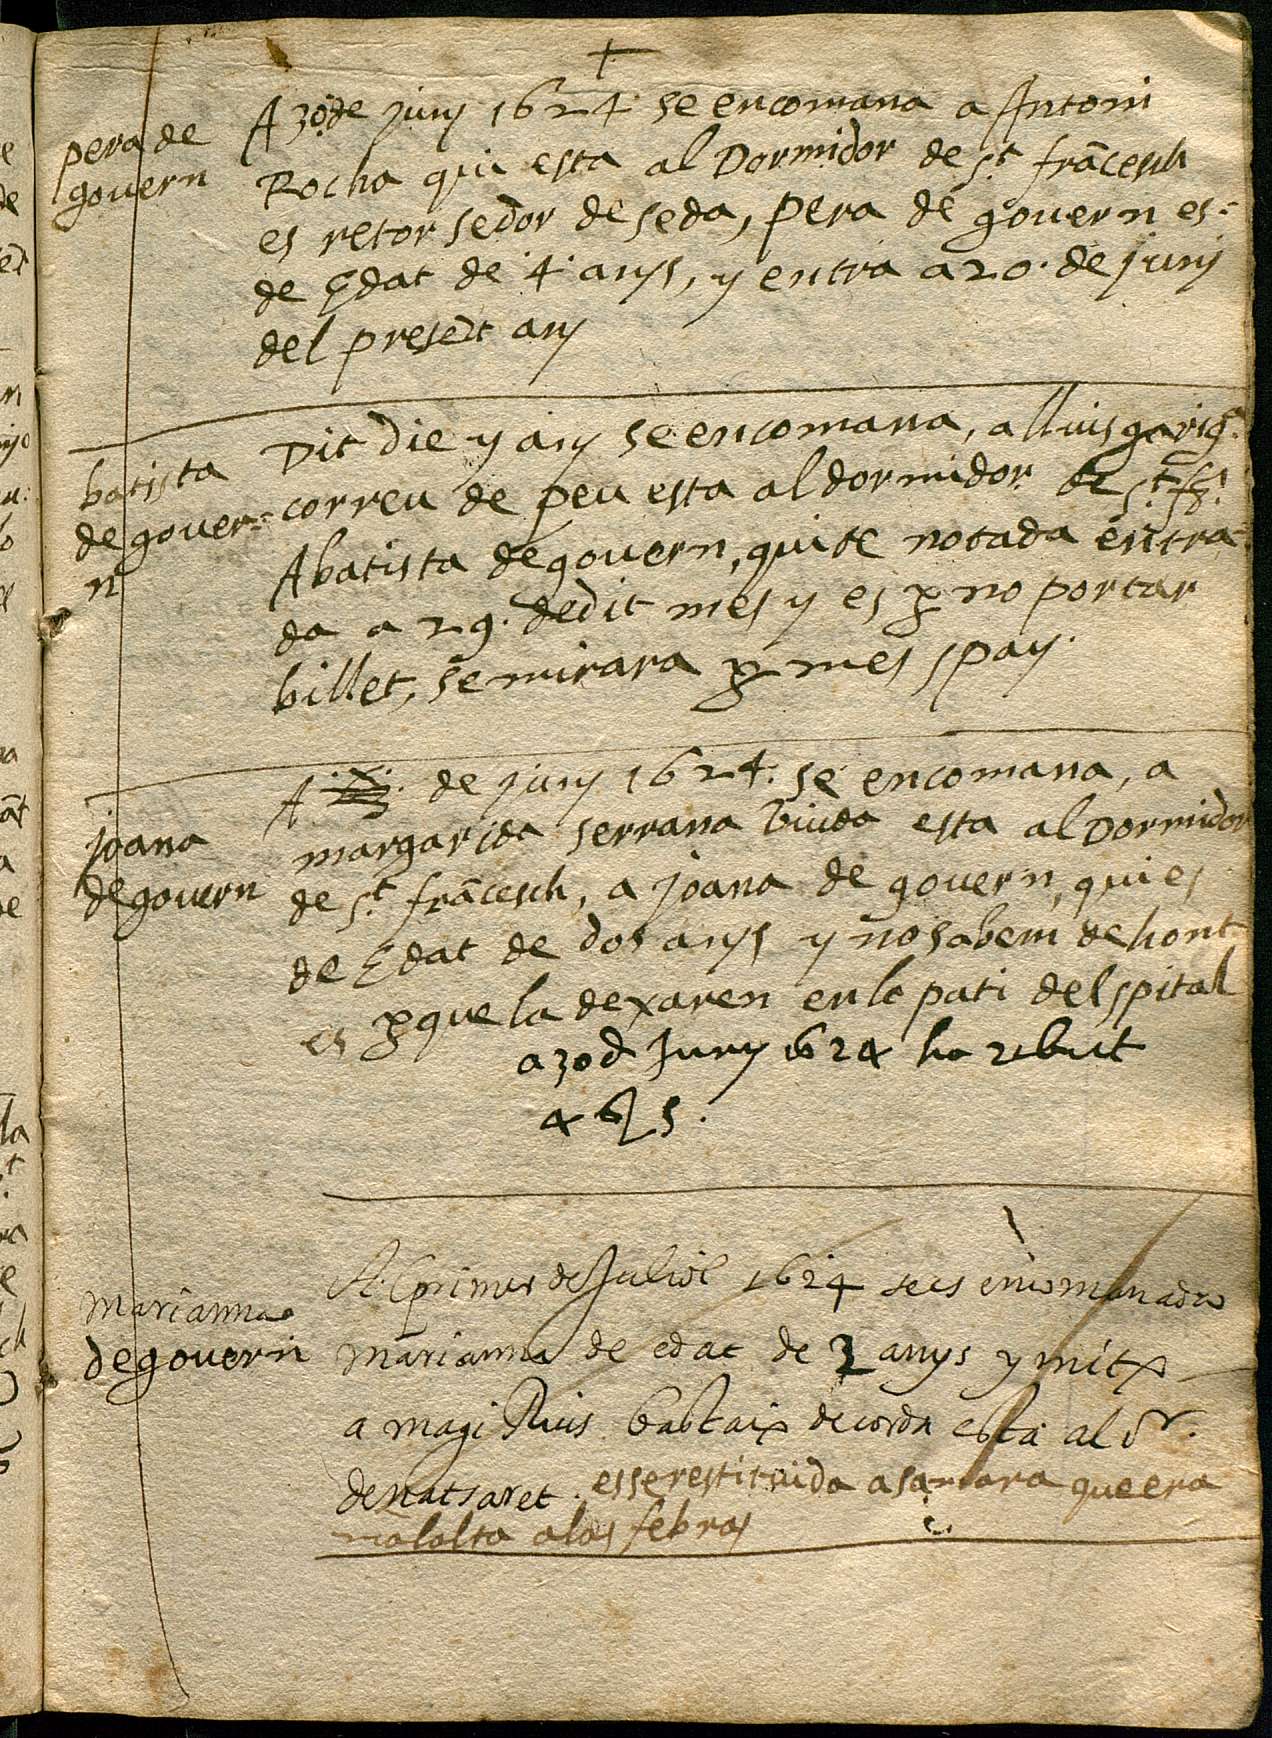 +
pera de
govern
A 30 de juny 1624 se encomana a Antoni
Rocha qui esta al Dormidor de st. frācesch
es retorsedor de seda, pera de govern es
de Edat de 4 anys, y entra a 20 de juny
del presēt any
batista
de gover-
n
Dit die y any se encomana, a lluis
correu de peu esta al dormidor de st. fr.
A batista de govern, qui te notada entra-
da a 29. de dit mes y es p no portar
billet, se mirara p mes spay.
joana
de govern
A de juny 1624. se encomana, a
margarida serrana biuda esta al Dormidor
de st. frācesch, a joana de govern, qui es
de Edat de dos anys y no sabem de hont
es p que la dexaren en lo pati del spital
a 30 d Juny 1624 ha rebut
Marianna
de govern
Al primer de Juliol 1624 se es encomanada
Marianna de edat de anys y mitx
a magi Rius bastaix de corda esta al dr.
de natzaret. es se restituida a sa mara que era
malalta a las febras